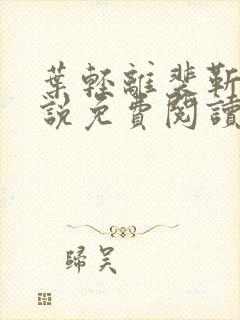 葉輕離裴靳
說免費閱讀
歸吴